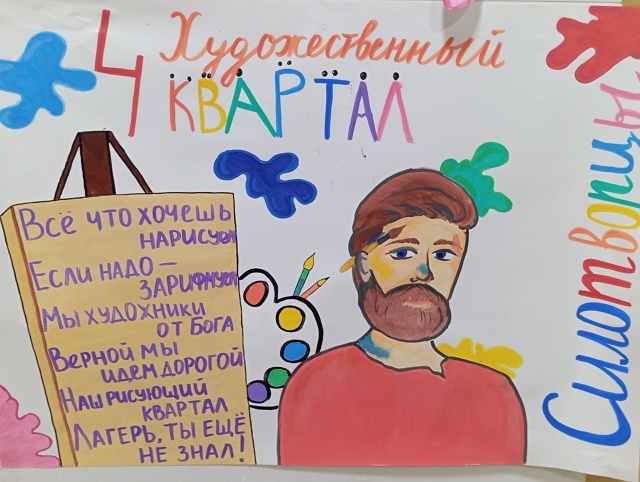 4 Художественный
КВАРТАЛ
Всё что хочешь
нарисуем
Если надо –
зарифмуем
Мы художники
от бога
Верной мы
идем дорогой
Наш рисующий
квартал
Лагерь, ты ещё
не знал!
Силотворцы